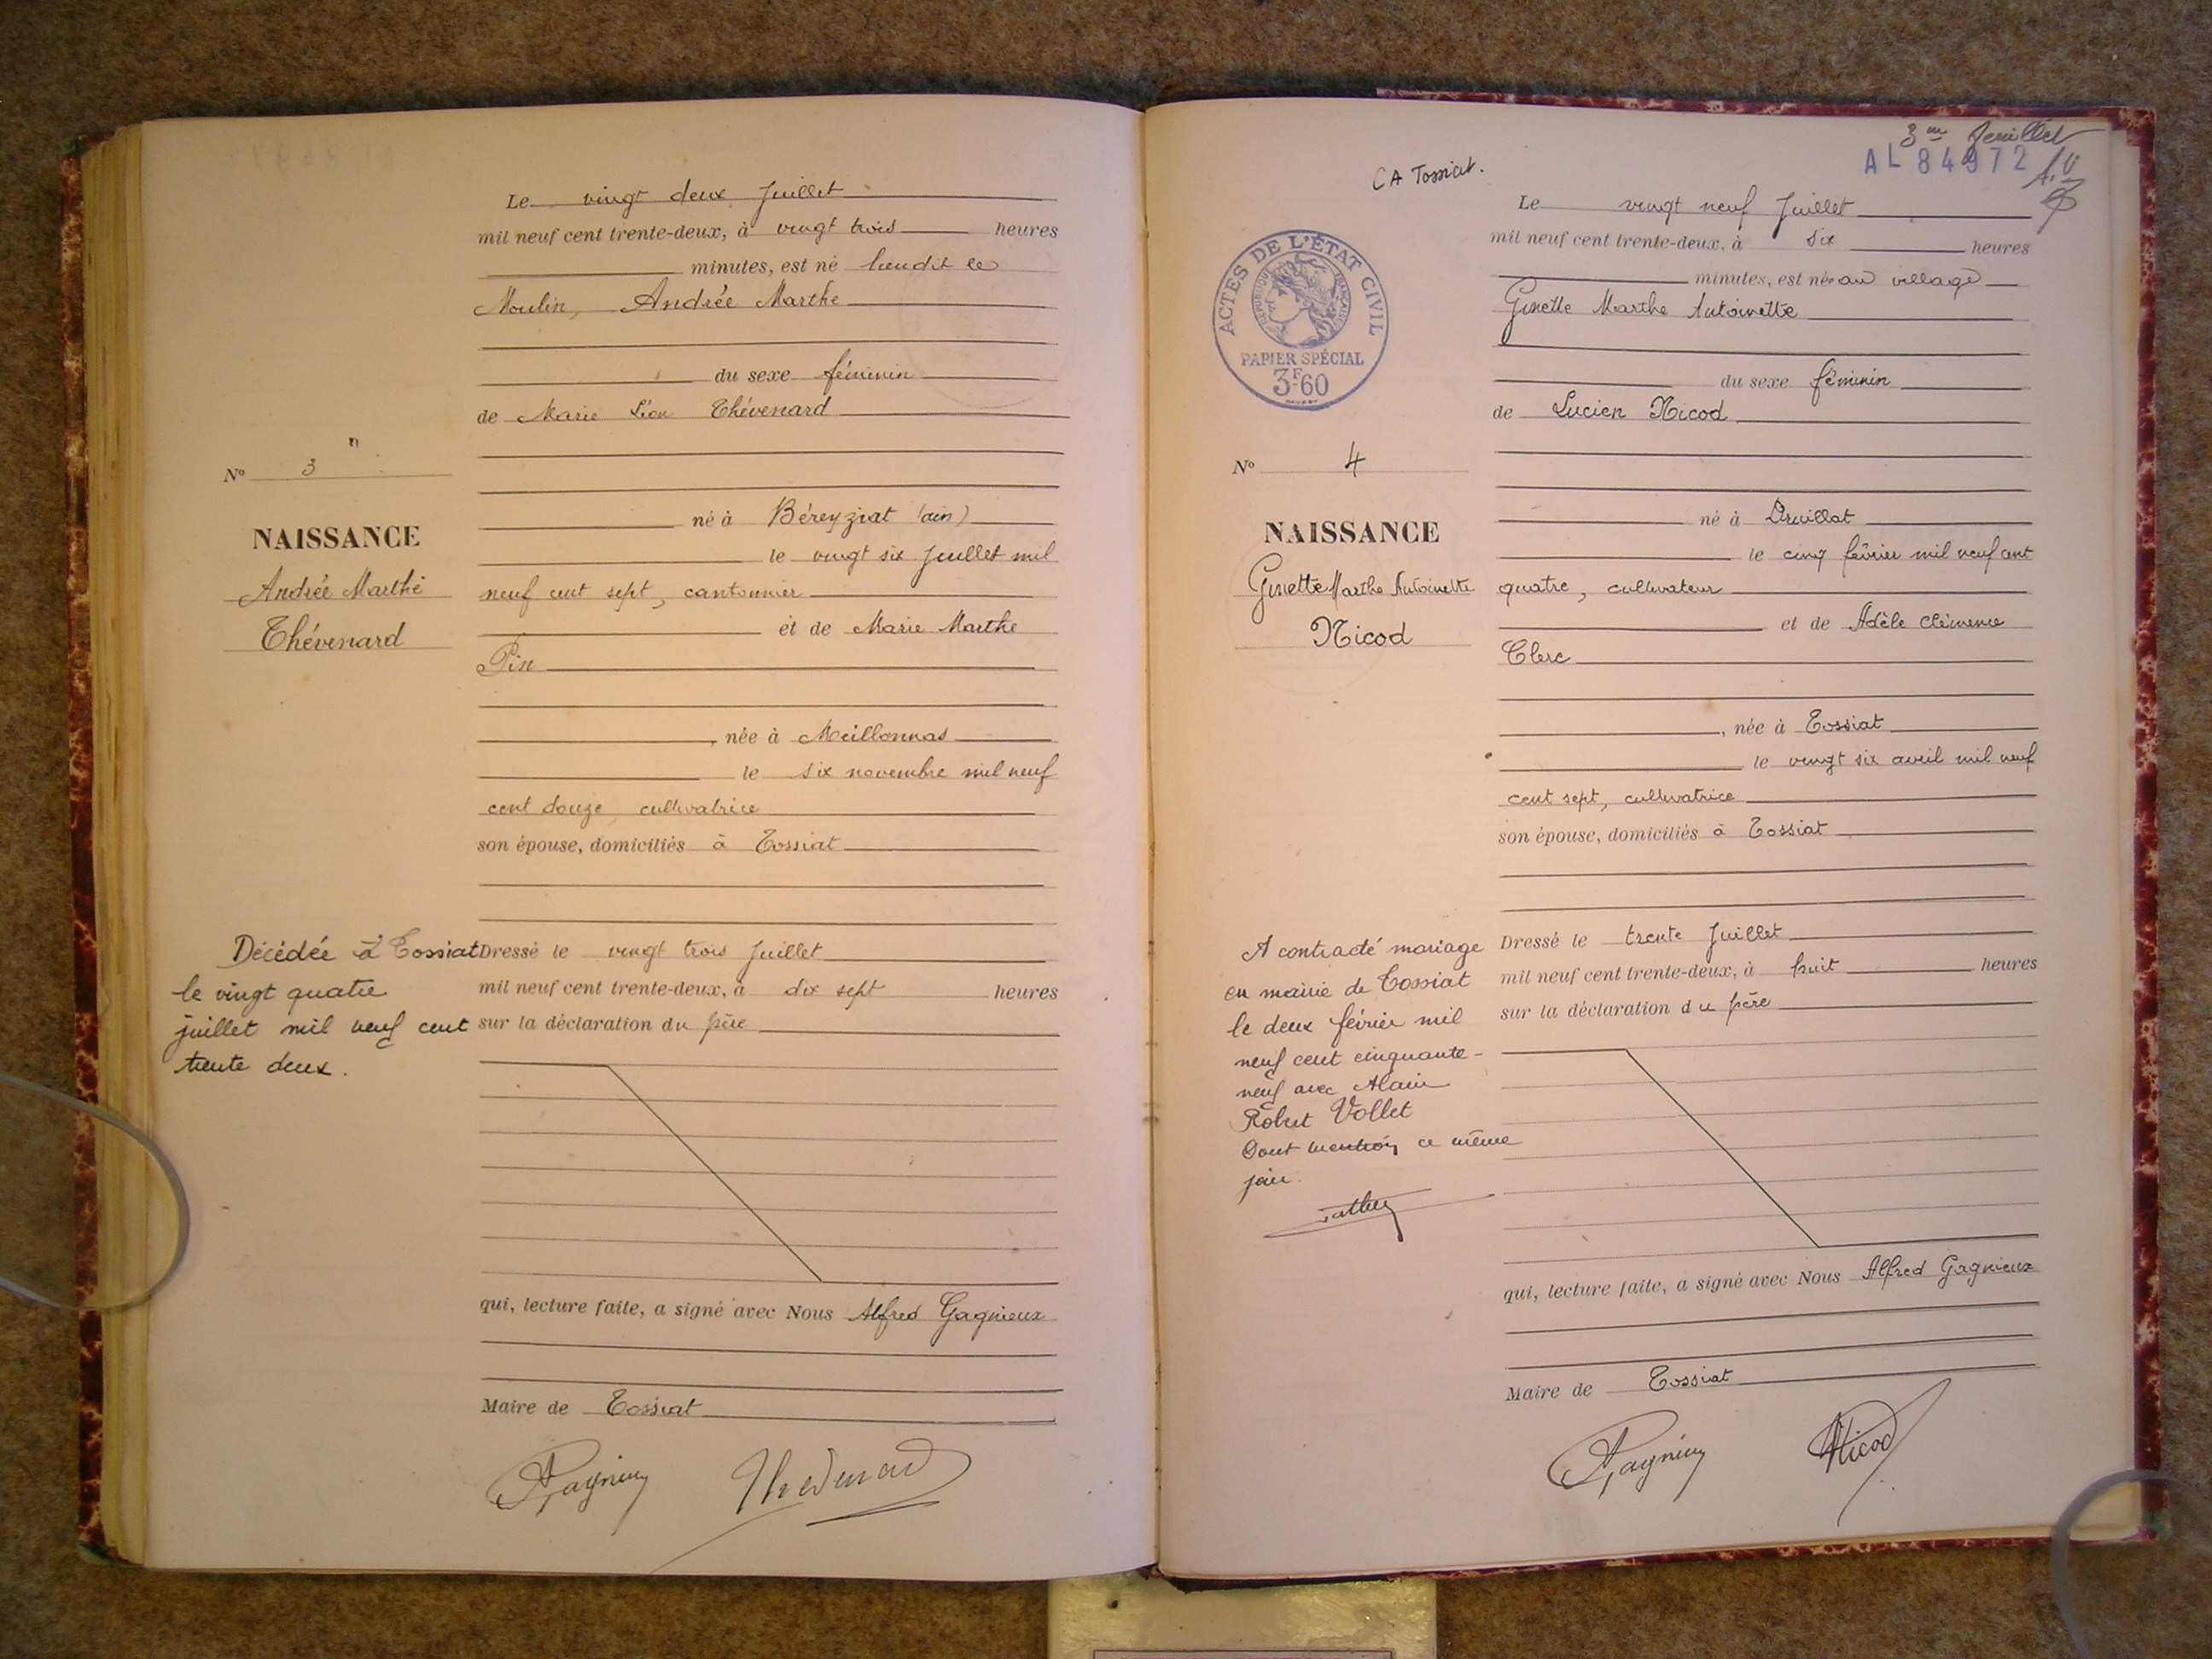 Le vingt deux Juillet
mil neuf cent trente-deux, à vingt trois heures
minutes, est né lieudit le
Moulin, Andrée Marthe
du sexe féminin
de Marie Léon Thévenard
N° 3
né à Béreyziat (ain)
NAISSANCE
le vingt six Juillet mil
Andrée Marthe
neuf cent sept, cantonnier
Thévenard
et de Marie Marthe
Pin
, née à Meillonnas
le six novembre mil neuf
cent douze, cultivatrice
son épouse, domiciliés à Tossiat
Décédée à Tossiat
le vingt quatre
juillet mil neuf cent
trente deux.
Dressé le vingt trois Juillet
mil neuf cent trente-deux, à dix sept heures
sur la déclaration du père
qui, lecture faite, a signé avec Nous Alfred Gagnieux
Maire de Tossiat
AGagnieux Thévenard
3me feuillet
AL 84972
CA Tossiat.
ACTES DE L'ÉTAT CIVIL
RÉPUBLIQUE FRANÇAISE
PAPIER SPÉCIAL
3F.60
Le vingt neuf Juillet
mil neuf cent trente-deux, à six heures
minutes, est née au village
Ginette Marthe Antoinette
du sexe féminin
de Lucien Nicod
N° 4
né à Druillat
NAISSANCE
le cinq février mil neuf cent
Ginette Marthe Antoinette
quatre, cultivateur
Nicod
et de Adèle Clémence
Clerc
, née à Tossiat
le vingt six avril mil neuf
cent sept, cultivatrice
son épouse, domiciliés à Tossiat
A contracté mariage
en mairie de Tossiat
le deux février mil
neuf cent cinquante-
neuf avec Alain
Robert Vollet
Dont mention ce même
jour.
Dressé le trente Juillet
mil neuf cent trente-deux, à huit heures
sur la déclaration du père
qui, lecture faite, a signé avec Nous Alfred Gagnieux
Maire de Tossiat
AGagnieux Nicod